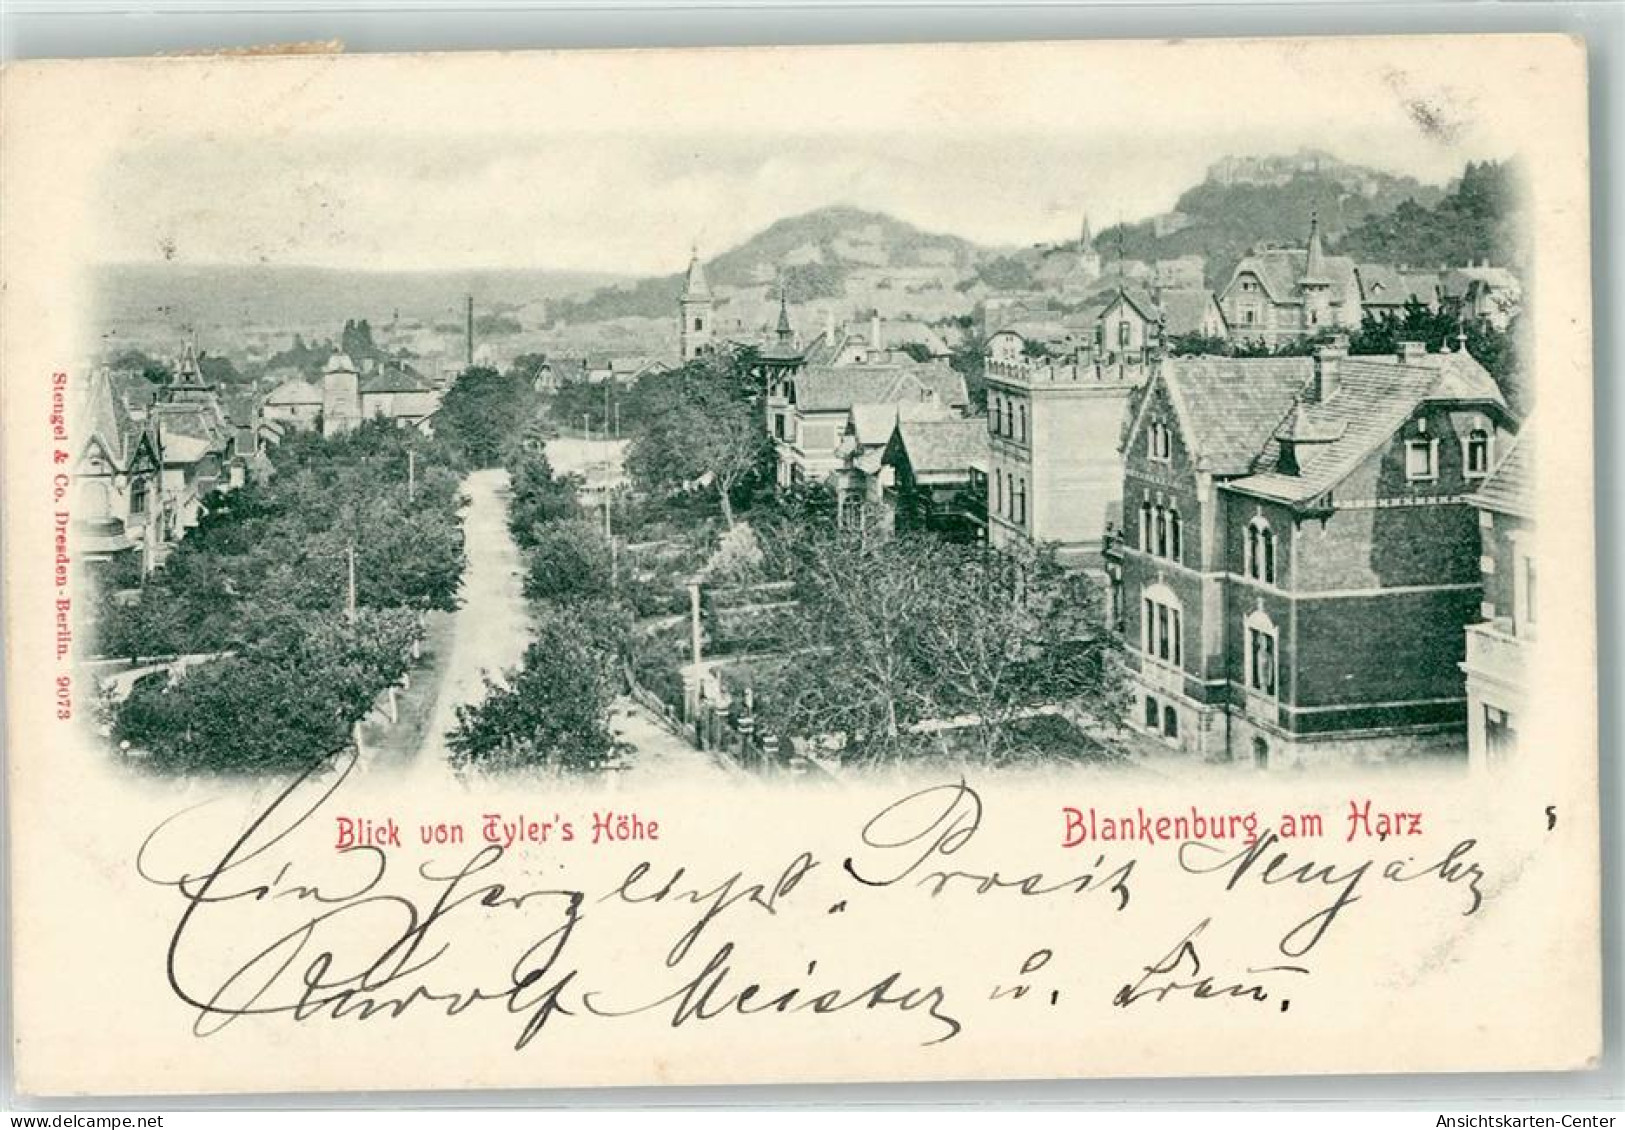 Stengel & Co. Dresden-Berlin. 9073
Blick von Tyler's Höhe
Blankenburg am Harz
Ein herzliches „Prosit Neujahr“
Rudolf Meister u. Frau.
Ansichtskarten-Center